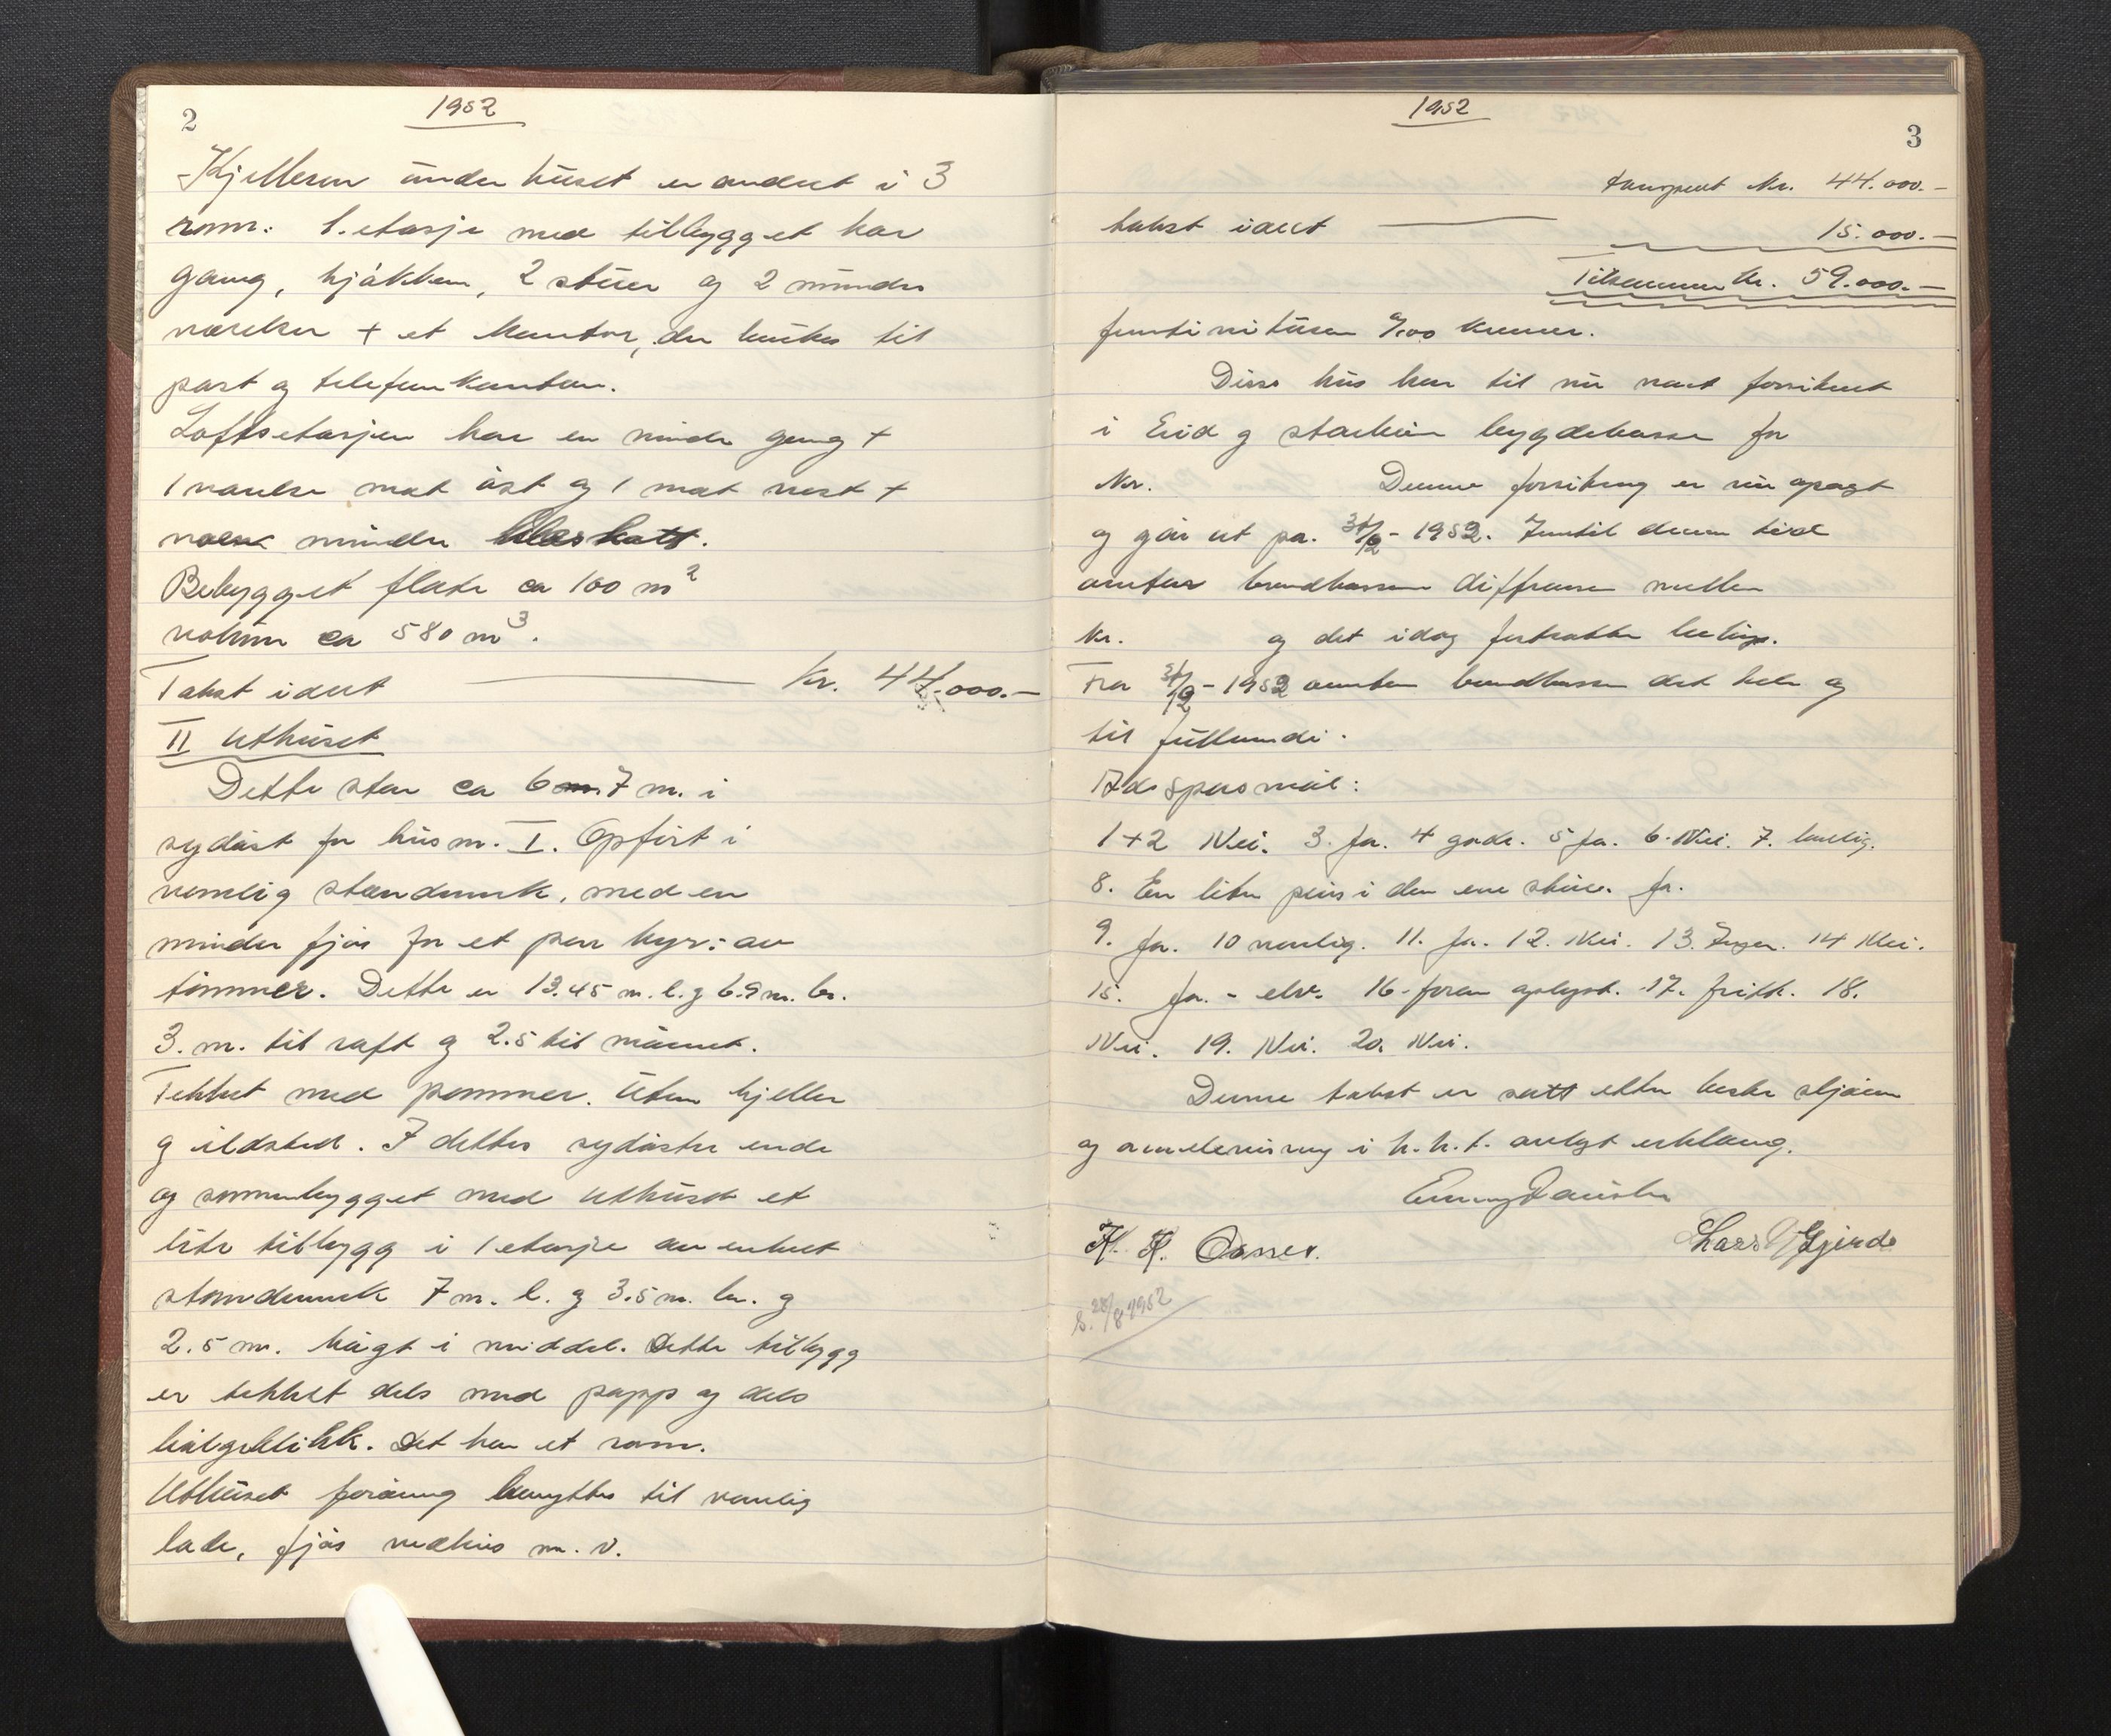 2
1952
Kjelleren under huset er andert i 3
rom. 1. etasje med tilbygget har
gang, kjøkken, 2 stuer og 2 mindre
værelser + et kontor, der brukes til
post og telefonkontor.
Loftsetasjen har en mindre gang +
1 værelse mot øst og 1 mot vest +
noen mindre kleskott.
Bebygget flate ca 100 m2
volum ca 580 m3.
Takst idet Kr. 44.000.-
II Uthuset
Dette står ca 6 m. 7 m. i
sydøst for hus nr. I. Opført i
vanlig standverk, med en
mindre fjøs for et par kyr: av
tømmer. Dette er 13.45 m. l. og 6.9 m. br.
3. m. til raft og 2.5 til mønet.
Tekket med panner. Uten kjeller
og ildsted. I dettes sydøstre ende
og sammenbygget med uthuset et
lite tilbygg i 1 etasje av enkelt
standverk 7 m. l. og 3.5 m. br. og
2.5 m. høgt i middel. Dette tilbygg
er tekket dels med papp og dels
bølgeblikk. Det har et rom.
Uthuset forøvrig benyttes til vanlig
lade, fjøs vedhus m. v.
1952
3
transport Kr. 44.000.-
takst idet 15.000.-
Tilsammen Kr. 59.000.-
femtinitusen 0/00 kroner.
Disse hus har til nu vært forsikret
i Eid og bygdekasse for
Kr. Denne forsikring er nu opsagt
og går ut på. 31/12 - 1952. Inntil denne tid
overtar brandkassen differansen mellom
kr. og det idag fastsatte beløp.
Fra 31/12 - 1952 overtar brandkassen det hele og
til fullverdi.
Ad spørsmål:
1+2 Nei. 3. Ja. 4 gode. 5 Ja. 6. Nei. 7. vanlig.
8. En liten peis i den ene stue. Ja.
9. Ja. 10 vanlig. 11. Ja. 12. Nei. 13. Ingen. 14 Nei.
15. Ja. - elv. 16. foran oplyst. 17. fritt. 18.
Nei. 19. Nei. 20. Nei.
Denne takst er satt etter beste skjønn
og overbevisning i h. h. t. avlagt erklæring.
K. K. Osser. Lars Gjerde
S. 28/8 1952